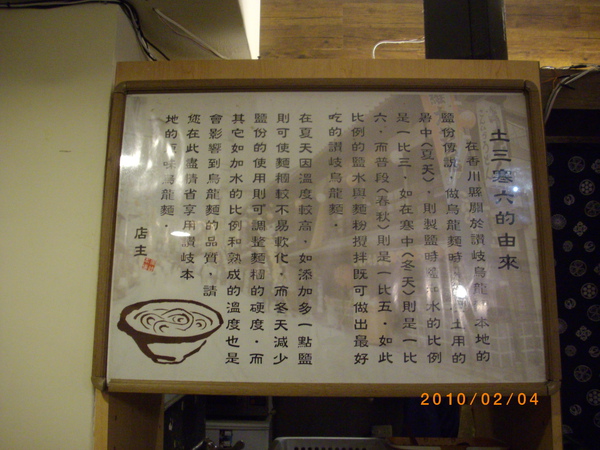 土三寒六的由來
在香川縣關於讚岐烏龍 本地的
鹽份傳說．做烏龍麵時 土用的
暑中（夏天）則製鹽時 和水的比例
是一比三．如在寒中（冬天）則是一比
六．而普段（春秋）則是一比五．如此
比例的鹽水與麵粉攪拌既可做出最好
吃的讚岐烏龍麵．
在夏天因溫度較高．如添加多一點鹽
則可使麵糰較不易軟化．而冬天減少
鹽份的使用則可調整麵糰的硬度．而
其它如加水的比例和熟成的溫度也是
會影響到烏龍麵的品質．請
您在此盡情省享用讚岐本
地的 味烏龍麵．
店主
2010/02/04